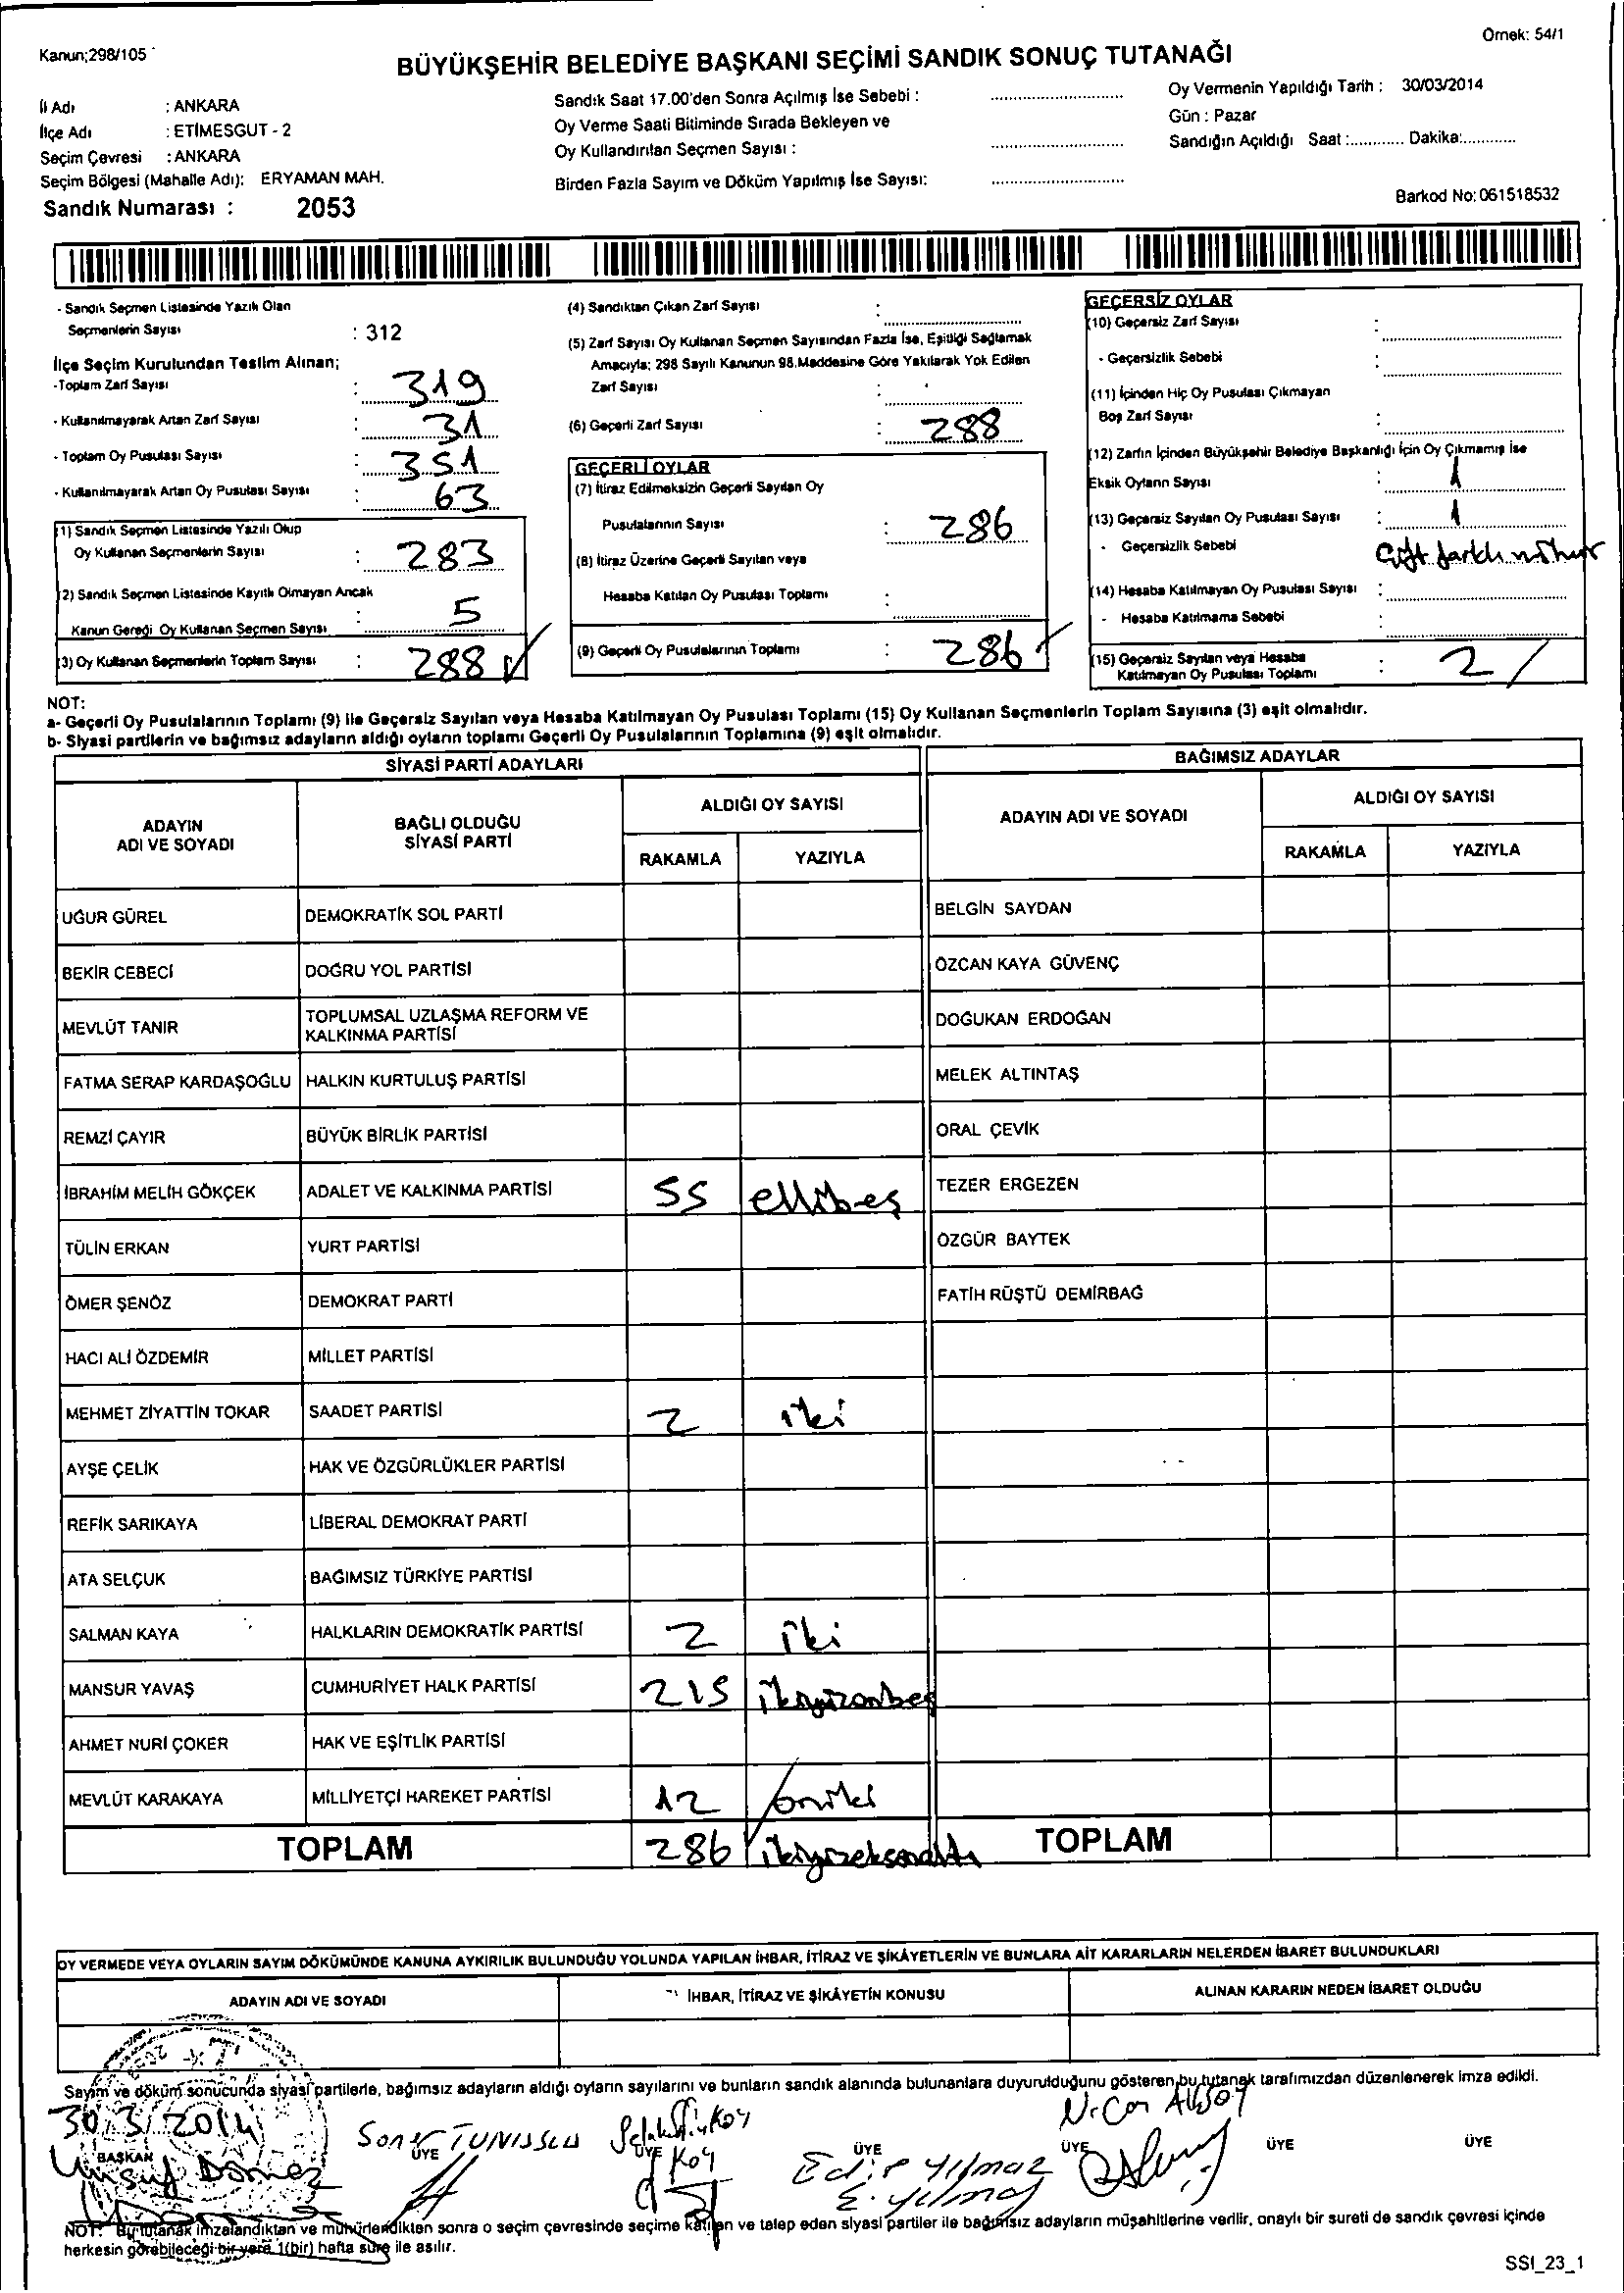 Kanun;298/105
Örnek: 54/1
BÜYÜKŞEHİR BELEDİYE BAŞKANI SEÇİMİ SANDIK SONUÇ TUTANAĞI
İl Adı : ANKARA
İlçe Adı : ETİMESGUT - 2
Seçim Çevresi : ANKARA
Seçim Bölgesi (Mahalle Adı): ERYAMAN MAH.
Sandık Numarası : 2053
Sandık Saat 17.00'den Sonra Açılmış İse Sebebi :
Oy Verme Saati Bitiminde Sırada Bekleyen ve
Oy Kullandırılan Seçmen Sayısı :
Birden Fazla Sayım ve Döküm Yapılmış İse Sayısı:
Oy Vermenin Yapıldığı Tarih : 30/03/2014
Gün : Pazar
Sandığın Açıldığı Saat :............ Dakika:.............
Barkod No: 061518532
- Sandık Seçmen Listesinde Yazılı Olan
Seçmenlerin Sayısı : 312
İlçe Seçim Kurulundan Teslim Alınan;
-Toplam Zarf Sayısı : 319
- Kullanılmayarak Artan Zarf Sayısı : 31
- Toplam Oy Pusulası Sayısı : 351
- Kullanılmayarak Artan Oy Pusulası Sayısı : 63
(1) Sandık Seçmen Listesinde Yazılı Olup
Oy Kullanan Seçmenlerin Sayısı : 283
(2) Sandık Seçmen Listesinde Kayıtlı Olmayan Ancak
Kanun Gereği Oy Kullanan Seçmen Sayısı : 5
(3) Oy Kullanan Seçmenlerin Toplam Sayısı : 288
(4) Sandıktan Çıkan Zarf Sayısı :
(5) Zarf Sayısı Oy Kullanan Seçmen Sayısından Fazla İse, Eşitliği Sağlamak
Amacıyla; 298 Sayılı Kanunun 98.Maddesine Göre Yakılarak Yok Edilen
Zarf Sayısı :
(6) Geçerli Zarf Sayısı : 288
GEÇERLİ OYLAR
(7) İtiraz Edilmeksizin Geçerli Sayılan Oy
Pusulalarının Sayısı : 286
(8) İtiraz Üzerine Geçerli Sayılan veya
Hesaba Katılan Oy Pusulası Toplamı :
(9) Geçerli Oy Pusulalarının Toplamı : 286
GEÇERSİZ OYLAR
(10) Geçersiz Zarf Sayısı :
- Geçersizlik Sebebi :
(11) İçinden Hiç Oy Pusulası Çıkmayan
Boş Zarf Sayısı :
(12) Zarfın İçinden Büyükşehir Belediye Başkanlığı İçin Oy Çıkmamış İse
Eksik Oyların Sayısı : 1
(13) Geçersiz Sayılan Oy Pusulası Sayısı : 1
- Geçersizlik Sebebi Çift farklı mühür
(14) Hesaba Katılmayan Oy Pusulası Sayısı :
- Hesaba Katılmama Sebebi :
(15) Geçersiz Sayılan veya Hesaba
Katılmayan Oy Pusulası Toplamı : 2
NOT:
a- Geçerli Oy Pusulalarının Toplamı (9) ile Geçersiz Sayılan veya Hesaba Katılmayan Oy Pusulası Toplamı (15) Oy Kullanan Seçmenlerin Toplam Sayısına (3) eşit olmalıdır.
b- Siyasi partilerin ve bağımsız adayların aldığı oyların toplamı Geçerli Oy Pusulalarının Toplamına (9) eşit olmalıdır.
SİYASİ PARTİ ADAYLARI
ADAYIN
ADI VE SOYADI
BAĞLI OLDUĞU
SİYASİ PARTİ
ALDIĞI OY SAYISI
RAKAMLA YAZIYLA
UĞUR GÜREL DEMOKRATİK SOL PARTİ
BEKİR CEBECİ DOĞRU YOL PARTİSİ
MEVLÜT TANIR TOPLUMSAL UZLAŞMA REFORM VE
KALKINMA PARTİSİ
FATMA SERAP KARDAŞOĞLU HALKIN KURTULUŞ PARTİSİ
REMZİ ÇAYIR BÜYÜK BİRLİK PARTİSİ
İBRAHİM MELİH GÖKÇEK ADALET VE KALKINMA PARTİSİ 55 ellibeş
TÜLİN ERKAN YURT PARTİSİ
ÖMER ŞENÖZ DEMOKRAT PARTİ
HACI ALİ ÖZDEMİR MİLLET PARTİSİ
MEHMET ZİYATTİN TOKAR SAADET PARTİSİ 2 iki
AYŞE ÇELİK HAK VE ÖZGÜRLÜKLER PARTİSİ
REFİK SARIKAYA LİBERAL DEMOKRAT PARTİ
ATA SELÇUK BAĞIMSIZ TÜRKİYE PARTİSİ
SALMAN KAYA HALKLARIN DEMOKRATİK PARTİSİ 2 iki
MANSUR YAVAŞ CUMHURİYET HALK PARTİSİ 215 ikiyüzonbeş
AHMET NURİ ÇOKER HAK VE EŞİTLİK PARTİSİ
MEVLÜT KARAKAYA MİLLİYETÇİ HAREKET PARTİSİ 12 oniki
TOPLAM 286 ikiyüzseksenaltı
BAĞIMSIZ ADAYLAR
ADAYIN ADI VE SOYADI
ALDIĞI OY SAYISI
RAKAMLA YAZIYLA
BELGİN SAYDAN
ÖZCAN KAYA GÜVENÇ
DOĞUKAN ERDOĞAN
MELEK ALTINTAŞ
ORAL ÇEVİK
TEZER ERGEZEN
ÖZGÜR BAYTEK
FATİH RÜŞTÜ DEMİRBAĞ
TOPLAM
OY VERMEDE VEYA OYLARIN SAYIM DÖKÜMÜNDE KANUNA AYKIRILIK BULUNDUĞU YOLUNDA YAPILAN İHBAR, İTİRAZ VE ŞİKÂYETLERİN VE BUNLARA AİT KARARLARIN NELERDEN İBARET BULUNDUKLARI
ADAYIN ADI VE SOYADI İHBAR, İTİRAZ VE ŞİKÂYETİN KONUSU ALINAN KARARIN NEDEN İBARET OLDUĞU
Sayım ve döküm sonucunda siyasi partilerle, bağımsız adayların aldığı oyların sayılarını ve bunların sandık alanında bulunanlara duyurulduğunu gösteren bu tutanak tarafımızdan düzenlenerek imza edildi.
30/3/2014
BAŞKAN ÜYE ÜYE ÜYE ÜYE ÜYE ÜYE
Edip Yılmaz
E. Yılmaz
NOT: Bu tutanak imzalandıktan ve mühürlendikten sonra o seçim çevresinde seçime katılan ve talep eden siyasi partiler ile bağımsız adayların müşahitlerine verilir, onaylı bir sureti de sandık çevresi içinde
herkesin görebileceği bir yere 1(bir) hafta süre ile asılır.
SSI_23_1